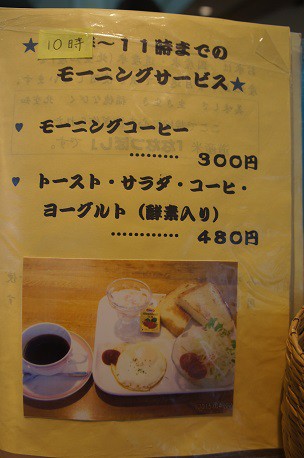 ★10時〜11時までの
モーニングサービス★
♥ モーニングコーヒー
・・・・・・・・・・・ 300円
♥ トースト・サラダ・コーヒ・
ヨーグルト（酵素入り）
・・・・・・・・・・・ 480円